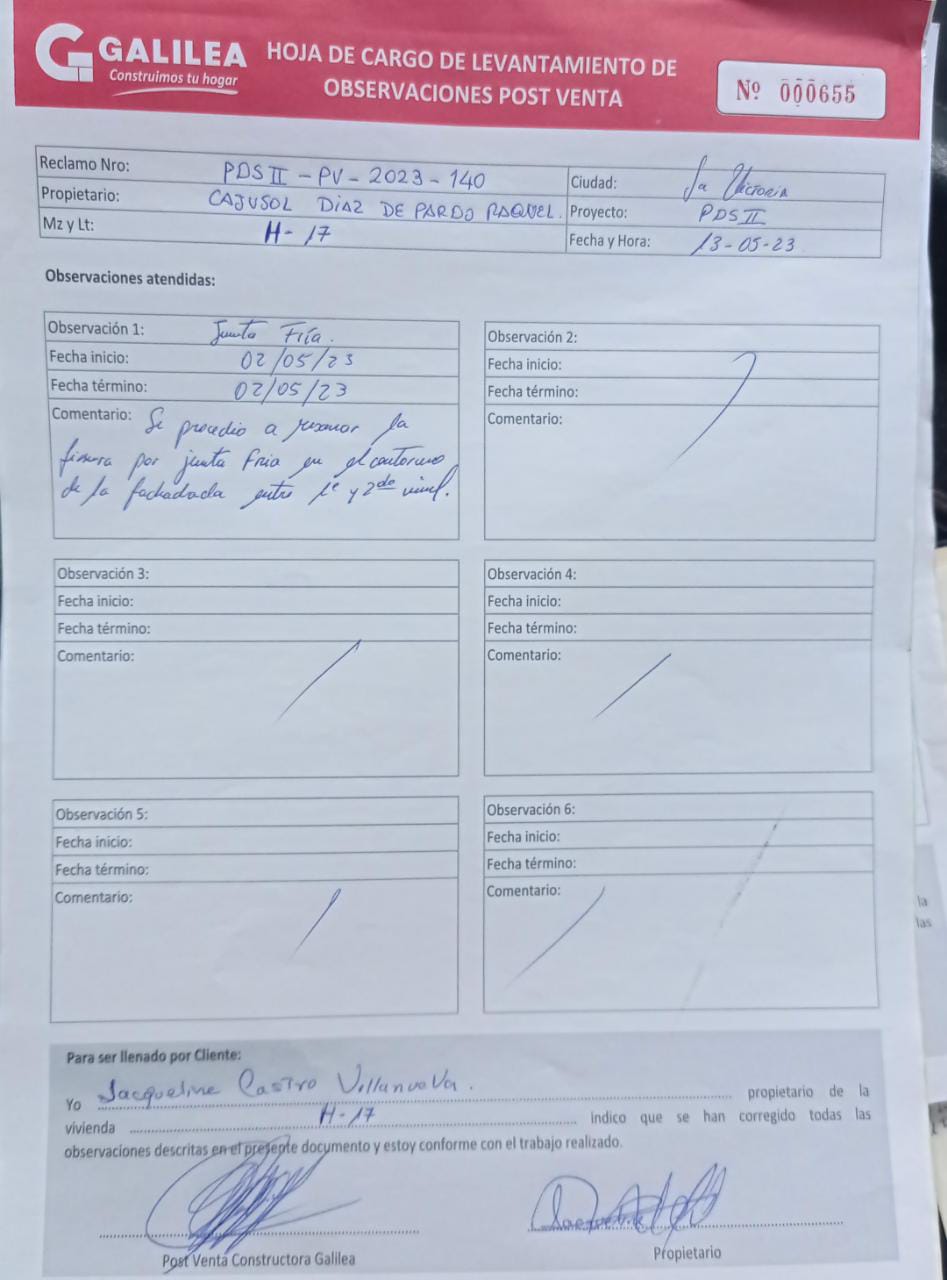 GALILEA
Construimos tu hogar
HOJA DE CARGO DE LEVANTAMIENTO DE
OBSERVACIONES POST VENTA
Nº 000655
Reclamo Nro: PDS II - PV - 2023 - 140
Ciudad: La Victoria
Propietario: CAJUSOL DIAZ DE PARDO RAQUEL.
Proyecto: PDS II
Mz y Lt: H - 17
Fecha y Hora: 13 - 05 - 23
Observaciones atendidas:
Observación 1: Junta Fría.
Fecha inicio: 02/05/23
Fecha término: 02/05/23
Comentario: Se procedio a resanar la
fisura por junta fria en el contorno
de la fachadada entre 1e y 2do nivel.
Observación 2:
Fecha inicio:
Fecha término:
Comentario:
Observación 3:
Fecha inicio:
Fecha término:
Comentario:
Observación 4:
Fecha inicio:
Fecha término:
Comentario:
Observación 5:
Fecha inicio:
Fecha término:
Comentario:
Observación 6:
Fecha inicio:
Fecha término:
Comentario:
Para ser llenado por Cliente:
Yo Jacqueline Castro Villanueva. propietario de la
vivienda H-17 indico que se han corregido todas las
observaciones descritas en el presente documento y estoy conforme con el trabajo realizado.
Post Venta Constructora Galilea
Propietario
la
las